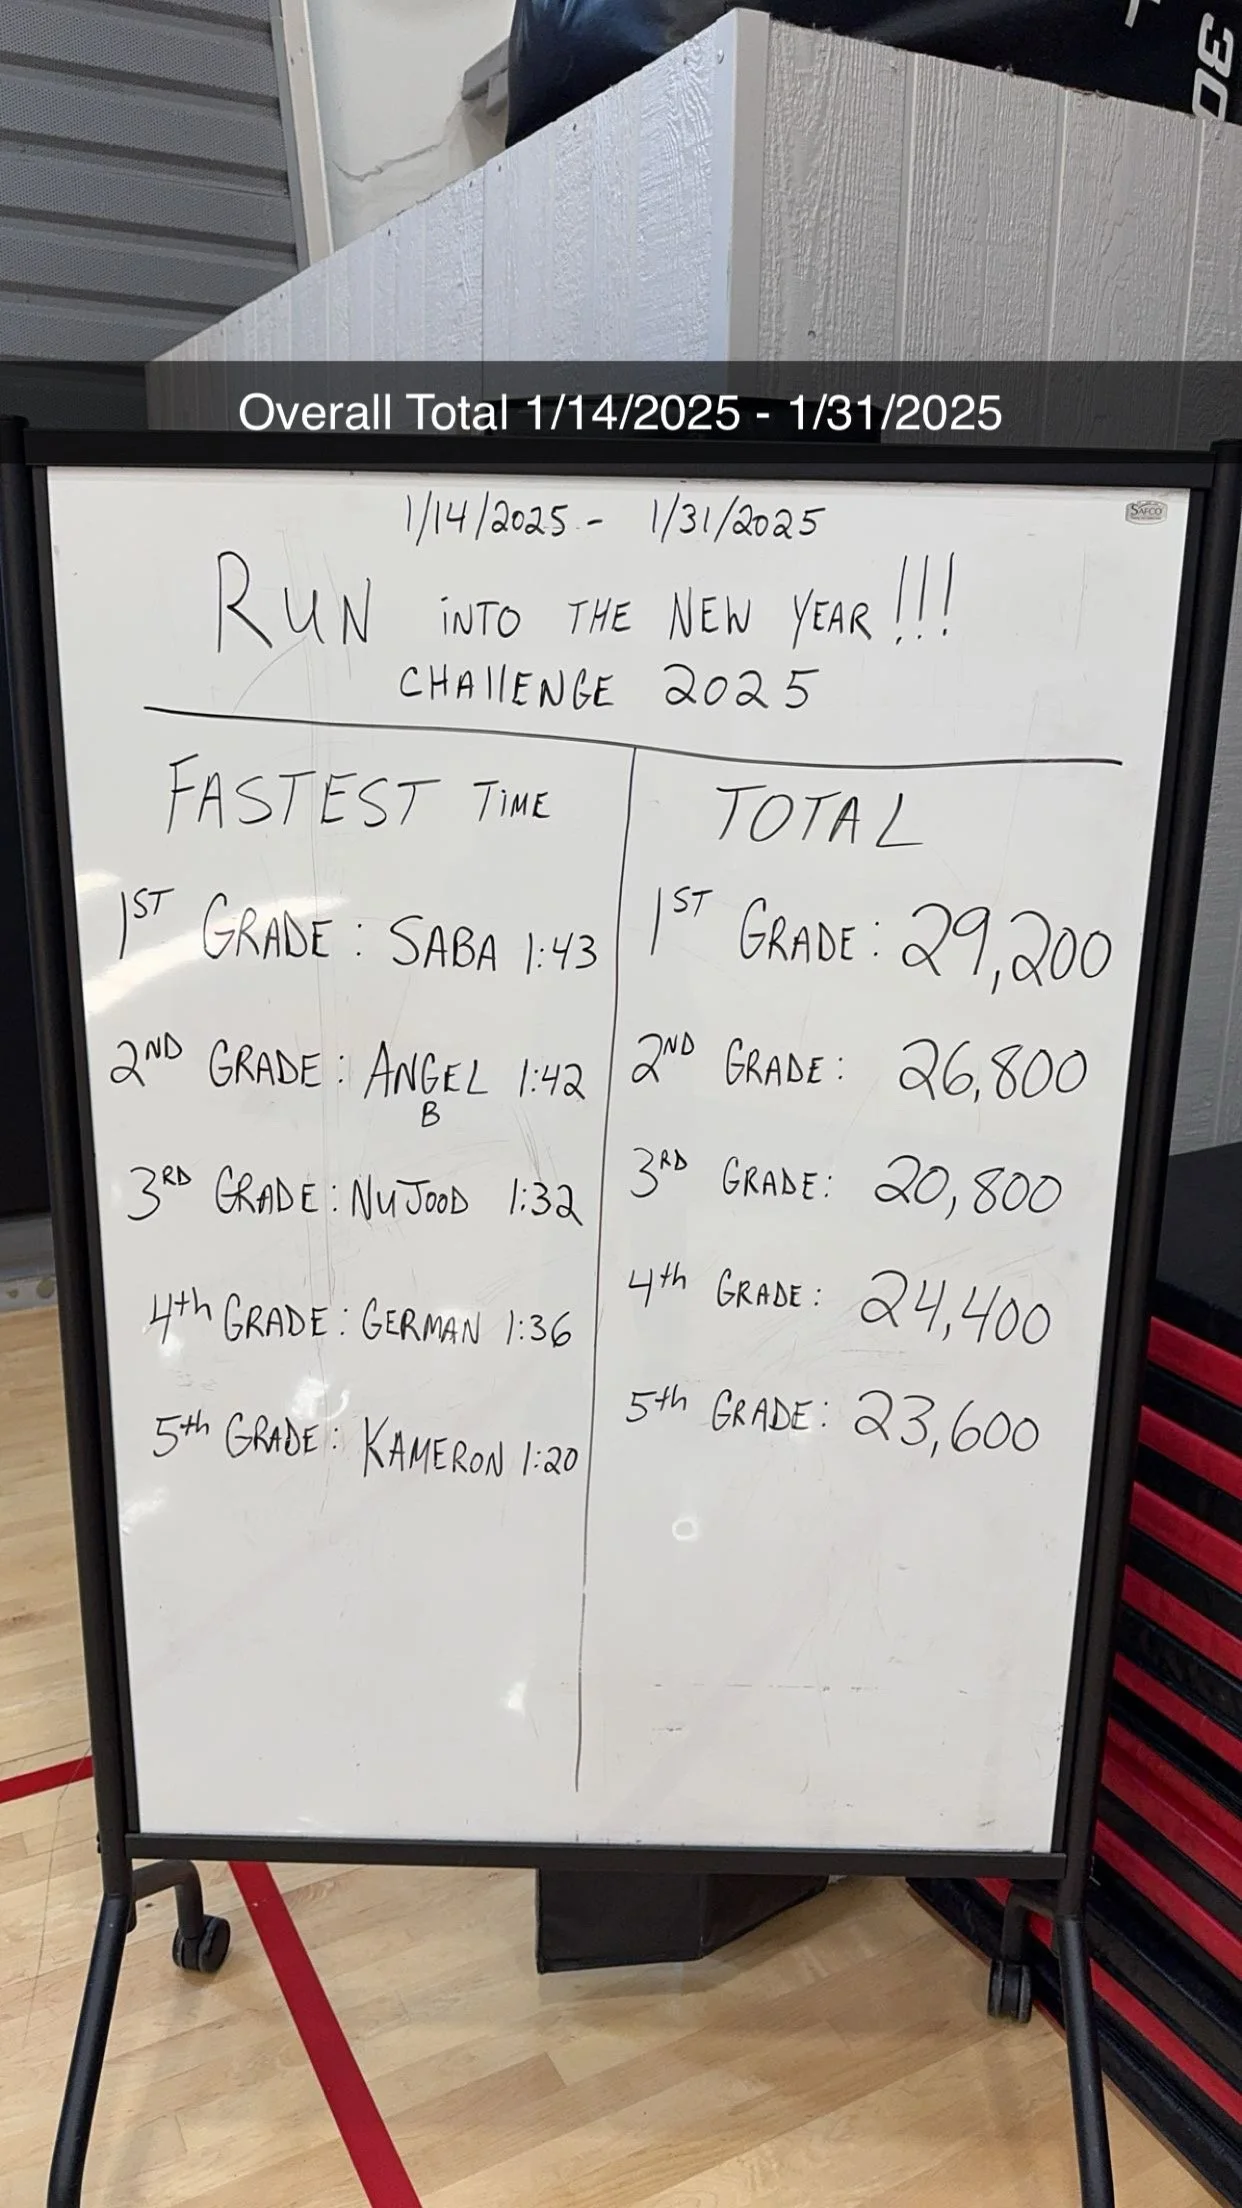 30
Overall Total 1/14/2025 - 1/31/2025
1/14/2025 - 1/31/2025
SAFCO
RUN iNTO THE NEW YEAR!!!
CHAllENGE 2025
FASTEST TiME
1ST GRADE: SABA 1:43
2ND GRADE: ANGEL B 1:42
3RD GRADE: NUJOOD 1:32
4th GRADE: GERMAN 1:36
5th GRADE: KAMERON 1:20
TOTAL
1ST GRADE: 29,200
2ND GRADE: 26,800
3RD GRADE: 20,800
4th GRADE: 24,400
5th GRADE: 23,600